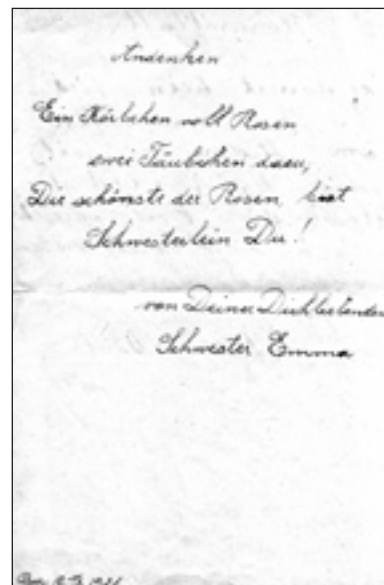 Andenken
Ein Körbchen voll Rosen
zwei Täubchen dazu,
Die schönste der Rosen bist
Schwesterlein Du!
von Deiner Dich liebenden
Schwester Emma